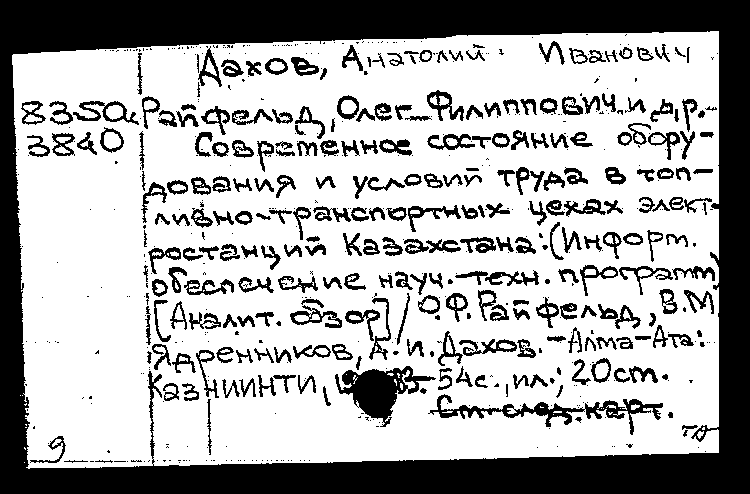 Дахов, Анатолий Иванович
8350а Райфельд, Олег Филиппович и др.
3840 Современное состояние обору-
дования и условий труда в топ-
ливно-транспортных цехах элект-
ростанций Казахстана: (Информ.
обеспечение науч.-техн. программ)
[Аналит. обзор] / О.Ф. Райфельд, В.М.
Ядренников, А.И. Дахов. - Алма-Ата:
КазНИИНТИ, 54с., ил.; 20см.
См. след. карт.
9